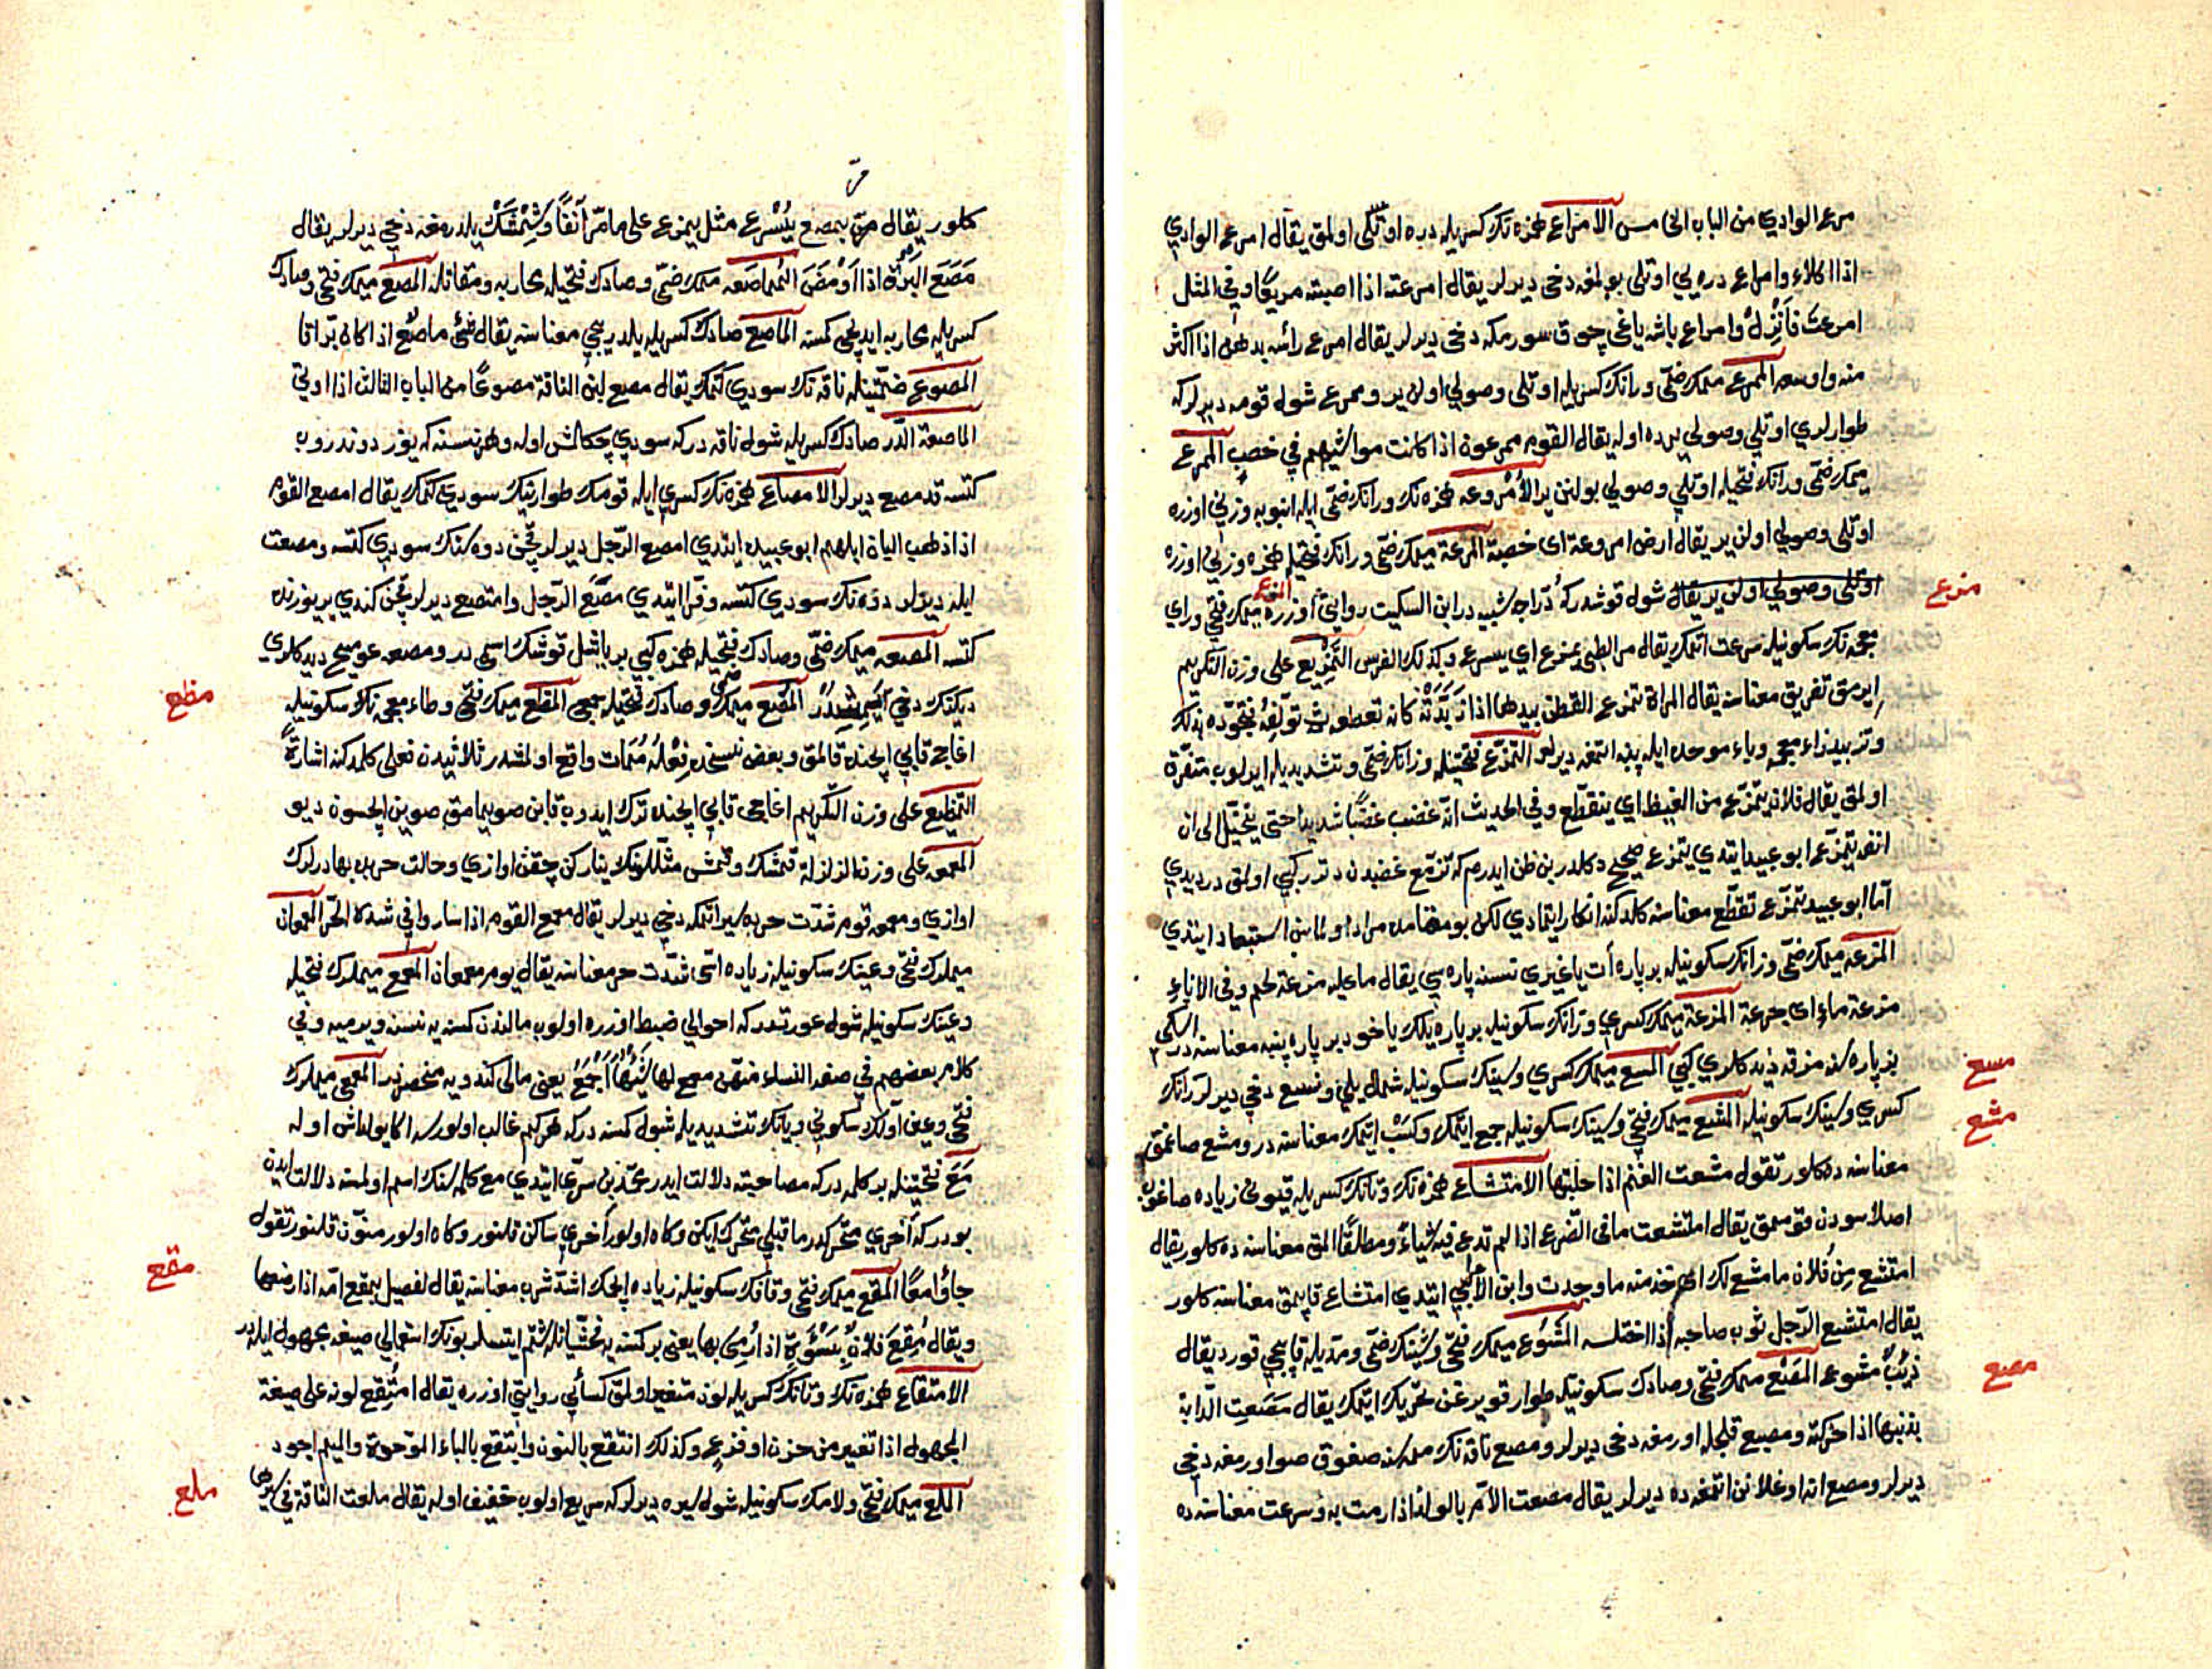 مرع الوادي من الباب الخامس الامراع همزه نك كسريله دره اوتلكى اولمق يقال امرع الوادي
اذا اكلاء وامراع دره يي اوتلى بولمغه دخى ديرلر يقال امرعته اذا اصبته مريعًا وفي المثل
امرعتَ فَاَنْزِلْ وامراع باشه ياغى چوق سورمكه دخى ديرلر يقال امرع رأسه بدهن اذا اكثر
منه واوسعه الممرع ميمك ضمّى ورانك كسريله اوتلى وصولي اولان ير وممرع شوله قومه ديرلركه
طوارلري اوتلي وصولي يرده اوله يقال القوم ممرعون اذا كانت مواشيهم في خصب الممرع
ميمك ضمّى ورانك فتحيله اوتلي وصولي بولنن ير الاُمْروعه همزه نك ورانك ضمّى ايله انبوبه وزني اوزره
اوتلى وصولي اولن ير يقال ارض امروعة اى خصبة المرعة ميمك ضمّى ورانك فتحيله همزه وزني اوزره
منزع
اوتلى وصولي اولن ير يقال شول قوشدركه دُرّاجه شبيه در ابن السكيت روايتى اوزره المزع ميمك فتحى وزاي
معجمه نك سكونيله سرعت اتمك يقال مر الظبي يمزع اي يسرع وكذلك الفرس التمزيع على وزن التكريم
ايرمق تفريق معناسنه يقال المراة تمزع القطن بيدها اذا زَبَّدَتْهُ كانه تقطعه ثم تؤلفه فتجوّده بذلك
وتزبيد زاء معجمه وباء موحده ايله پنبه اتمغه ديرلر التمزّع فتحتيله وزانك ضمّى وتشديديله ايرلوب متفرق
اولمق يقال فلان يتمزّع من الغيظ اي يتقطّع وفي الحديث انّه غضب غضبًا شديدا حتى يخيّل الى ان
انفه يتمزّع ابو عبيد ايتدي يتمزع صحيح دكلدر بن ظن ايدرم كه تزمّع غضبدن دترر كبي اولمق در ديدي
امّا ابو عبيد تمزّع تقطّع معناسنه كلدكنه انكار ايتمادي لكن بو مقامده مراد اولماسن استبعاد ايتدي
المزعه ميمك ضمّى وزانك سكونيله بر پاره ات ياغيري نسنه پاره سي يقال ما عليه مزعة لحم وفي الاناء
مزعة ماء اى جرعة المزعة ميمك كسري وزانك سكونيله بر پاره يلك ياخود بر پاره پنبه معناسنه در اسكي
بز پاره سنه مزقه ديدكلري كبي المسع ميمك كسري وسينك سكونيله شمال يلي ونسع دخي ديرلر نانك
مسع
كسري وسينك سكونيله المشع ميمك فتحي وشينك سكونيله جمع ايتمك وكسب اتمك معناسنه در ومشع صاغمق
مشع
معناسنه ده كلور تقول مشعت الغنم اذا حلبتها الامتشاع همزه نك وتانك كسريله قيوني زياده صاغوب
اصلا سودن قومامق يقال امتشعت ما في الضرع اذا لم تدع فيه شياء ومطلقًا المق معناسنه ده كلور يقال
امتشع من فلان ما مشع لك اى خذ منه ما وجدت وابن الاعرابي ايتدي امتشاع قاپمق معناسنه كلور
يقال امتشع الرّجل ثوب صاحبه اذا اختلسه المَشُوع ميمك فتحى وشينك ضمّى ومدّيله قاپيجي قورد يقال
ذئب مشوع المَصْع ميمك فتحى وصادك سكونيله طوار قويرغن تحريك ايتمك يقال مَصَعتِ الدّابة
مصع
بذنبها اذا حرّكته ومصع قلجله اورمغه دخى ديرلر ومصع ناقه نك ممه سنه صغوق صو اورمغه دخي
ديرلر ومصع انا اوغلانن اتمغه ده ديرلر يقال مصعت الاُمّ بالولد اذا رمت به وسرعت معناسنه ده
كلور يقال مرّ يمصع يُسْرع مثل يمزع على ما مرّ آنفًا وشِمْشَكْ يلدرمغه دخي ديرلر يقال
مَصَعَ البَرْق اذا اَوْمَضَ المُماصَعه ميمك ضمّى وصادك فتحيله محاربه ومقاتله المصع ميمك فتحى وصادك
كسريله محاربه ايديجى كمسنه الماصع صادك كسريله يلديرييجي معناسنه يقال شئ ماصع اذا كان برّاقا
المصوع ضمّتينله ناقه نك سودي كتمك يقال مصع لبن الناقة مصوعًا من الباب الثالث اذا ولّى
الماصعة الدّر صادك كسريله شول ناقه دركه سودي چكلش اوله وهر نسنه كه يوز دوندروب
كتسه قد مصع ديرلر الامصاع همزه نك كسري ايله قومك طوارينك سودي كتمك يقال امصع القوم
اذا ذهب البان ابلهم ابو عبيده ايتدي امصع الرّجل ديرلر قچن دوه سنك سودي كتسه ومصعت
ابله ديرلر دوه نك سودي كتسه وفرّا ايتدي مَصَع الرّجل وامتصع ديرلر قچن كندي ير يوزنده
كتسه المصعه ميمك ضمّى وصادك فتحيله همزه كبي بر ياشل قوشك اسمى در ومصعه عوسج ديدكلري
ديكنك دخي يمشيدر المصع ميمك ضمى وصادك فتحيله جمعى المظع ميمك فتحى وظاء معجمه نك سكونيله
مظع
اغاجى قابي ايچنده قالمق وبعض نسخه ده فعله مُمات واقع اولمشدر ثلاثيدن فعلى كلمدكنه اشارةً
التمظيع على وزن التكريم اغاجى قابي ايچنده ترك ايدوب قابن صويمامق صوين ايچسون ديو
المعمعه على وزن الزلزلة قمشك وقمش مثللونك يناركن چقن اوازي وحالت حربده بهادرلرك
اوازي ومعمعه قوم شدّت حرده سير اتمكه دخي ديرلر يقال معمع القوم اذا ساروا في شدة الحرّ المعمعان
ميملرك فتحى وعينك سكونيله زياده اسّى شدّت حر معناسنه يقال يوم معمعان المعمع ميملرك فتحيله
وعينك سكونيله شول عورتدركه احوالي ضبط اوزره اولوب مالندن كمسنه يه نسنه ويرميه وفي
كلام بعضهم في صفة النساء منهنّ معمع لها شَيْئُها اَجْمَعُ يعني مالى كندويه منحصردر المعمعى ميملرك
فتحى وعين اوّلك سكوني ويانك تشديديله شول كمسنه دركه هر كيم غالب اولورسه اكا يولداش اوله
مَعَ فتحتينله بر كلمه دركه مصاحبته دلالت ايدر محمّد بن سرّى ايتدي مع كلمه سنك اسم اولمسنه دلالت ايدن
بودركه آخري متحرّكدر ما قبلي متحرّك ايكن وكاه اولور آخري ساكن قلنور وكاه اولور منوّن قلنور تقول
جاؤا معًا المقع ميمك فتحى وقافك سكونيله زياده ايچمك اشدّ شرب معناسنه يقال الفصيل يمقع امّه اذا رضعها
مقع
ويقال مُقِعَ فلانٌ بسَوْءَةٍ اذا رُمِىَ بها يعنى بر كمسنه يه فحشيّاتله شتم ايتسلر بونك استعمالي صيغه مجهول ايله در
الامتقاع همزه نك وتانك كسريله لون متغير اولمق كسائى روايتى اوزره يقال امتُقِع لونه على صيغة
المجهول اذا تغير من حزن او فزع وكذلك انتقع بالنون وابتقع بالباء الموحدة والميم اجود
الملع ميمك فتحى ولامك سكونيله شول سيره ديرلركه سريع اولوب خفيف اوله يقال ملعت الناقة في سيرها
ملع